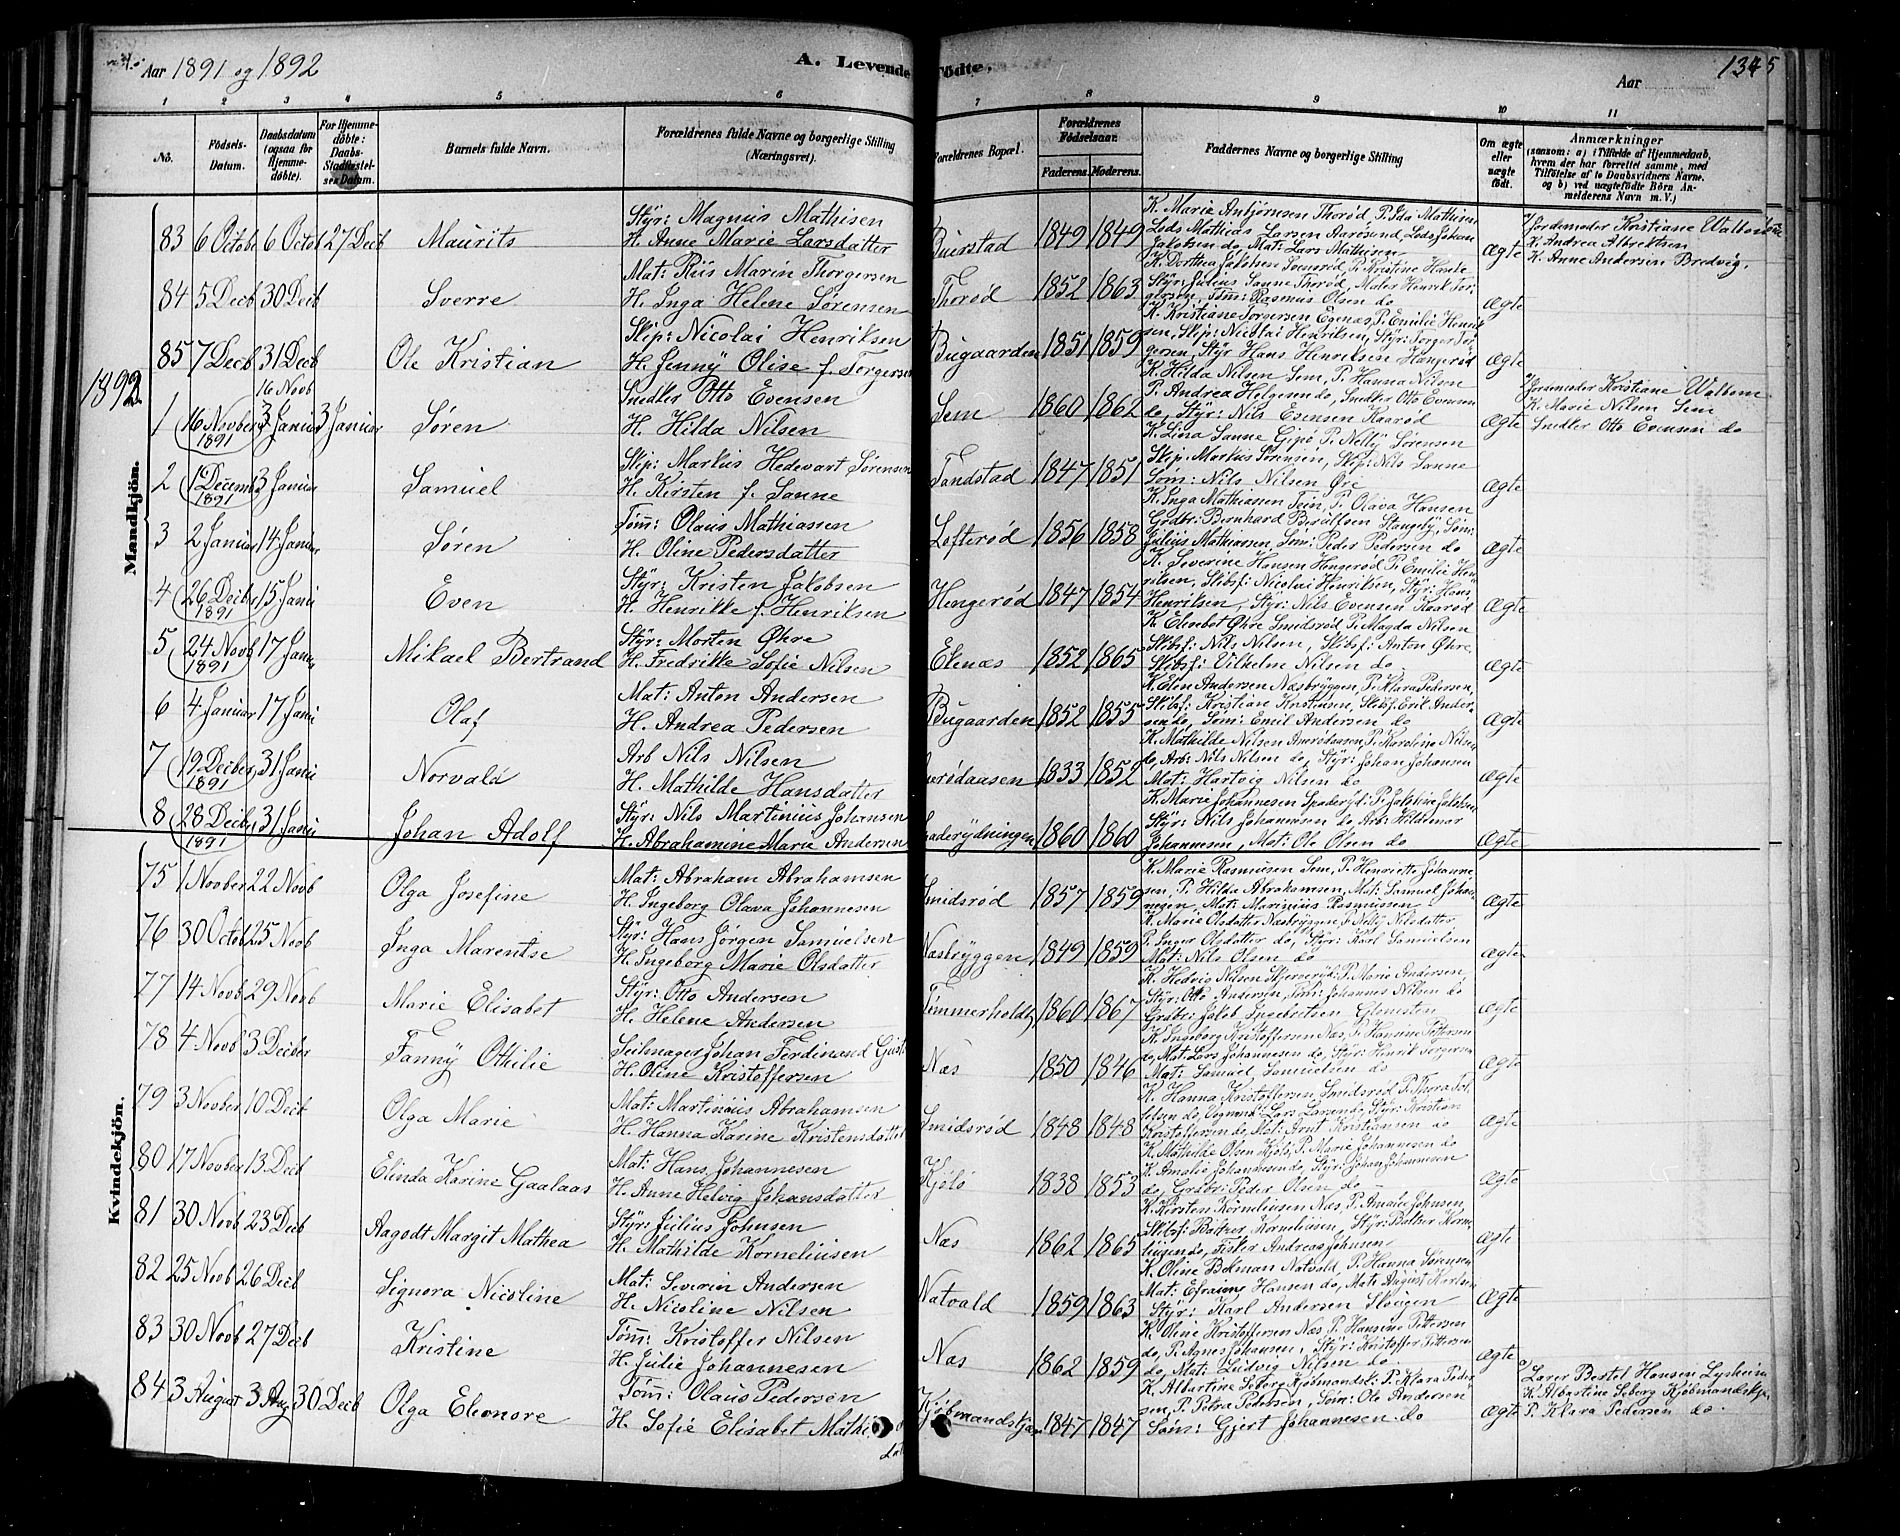 Aar 1891 og 1892
A. Levende Födte.
Aar
1345
1 2 3 4 5 6 7 8 9 10 11
No.
Födsels-Datum.
Daabsdatum (ogsaa for Hjemme-döbte).
For Hjemme-döbte: Daabs-Stadfæstel-ses Datum.
Barnets fulde Navn.
Forældrenes fulde Navne og borgerlige Stilling (Næringsvei).
Forældrenes Bopæl.
Forældrenes Födselsaar.
Faderens. Moderens.
Faddernes Navne og borgerlige Stilling
Om ægte eller uægte födt.
Anmærkninger
(saasom: a) i Tilfælde af Hjemmedaab, hvem der har forrettet samme, med Tilföielse af to Daabsvidners Navne, og b) ved uægtefödte Börn An-melderens Navn m.V.)
Mandkjön.
83 6 Octobe 6 Octob 27 Decb Maurits
Styr: Magnus Mathisen
H. Anne Marie Larsdatter
1849 1849
K. Marie Anbjørnsen Thorød, P. Ida Mathisen
Lods Mathias Larsen Aarøsund, Lods Johan
Jakobsen do, Mat: Lars Mathisen
Ægte
Jordemoder Kristiane Walbom
K. Andrea Albrektsen
K. Anne Andersen Bredvig.
84 5 Decb 30 Decb Sverre
Mat: Riis Marin Thorgersen
H. Inga Helene Sørensen
Thorød 1852 1863
K. Dorthea Jakobsen
Styr: Julius Sanne Thorød,
Tøm: Rasmus Olsen do
Ægte
85 7 Decb 31 Decb Ole Kristian
Skip: Nicolai Henriksen
H. Jenny Olise f. Torgersen
Bugaarden 1851 1859
K. Kristiane Torgersen Egenæs, P. Emilie Henrik
sen, Skip: Nicolai Henriksen, Styr: Torger Tor-
gersen, Styr Hans Henriksen Hengerød
Ægte
1892
16 Novb
1 16 Novber 1891 3 Januar 3 Januar Søren
Snedker Otto Evensen
H. Hilda Nilsen
Sem 1860 1862
K. Hilda Nilsen Sem, P. Hanna Nilsen
P. Andrea Helgesen do, Snedker Otto Evensen
do, Styr: Nils Evensen Kaarød
Ægte
Jordemoder Kristiane Walbom
K. Marie Nilsen Sem
Snedker Otto Evensen do
2 1 Decemb 1891 3 Januar Samuel
Skip: Markus Hedevart Sørensen
H. Kirsten f. Sanne
Tandstad 1847 1851
K. Lina Sanne Gipø P. Nelly Sørensen
Skip. Markus Sørensen, Skip: Nils Sanne
Tøm: Nils Nilsen Øre
Ægte
3 2 Januar 14 Januar Søren
Tøm: Olaus Mathiassen
H. Oline Pedersdatter
Lofterød 1856 1858
K. Inga Mathiassen Tein, P. Olava Hansen
Grdbr: Bernhard Berulfsen Stangeby, Tøm:
Julius Mathiassen, Tøm: Peder Pedersen do
Ægte
4 26 Decbr 1891 15 Janu Even
Styr: Kristen Jakobsen
H. Henrikke f. Henriksen
Hengerød 1847 1854
K. Severine Hansen Hengerød P. Emilie Hen
riksen, Skibsf: Nicolai Henriksen, Styr: Hans
Henriksen, Styr: Nils Evensen Kaarød
Ægte
5 24 Novb 1891 17 Janu Mikael Bertrand
Styr: Morten Øhre
H. Fredrikke Sofie Nilsen
Ekenæs 1852 1865
K. Elisabet Øhre Smidsrød P. Magda Nilsen
Skibsf: Nils Nilsen, Skibsf: Anton Øhre,
Skibsf: Vilhelm Nilsen do
Ægte
6 4 Januar 17 Janu Olaf
Mat: Anton Andersen
H. Andrea Pedersen
Bugaarden 1852 1855
K. Elen Andersen Næsbryggen, P. Klara Pedersen,
Skibsf: Kristian Kristensen, Skibsf: Emil Ander-
sen do, Tøm: Emil Andersen do
Ægte
7 19 Decber 1891 31 Janu Norvald
Arb Nils Nilsen
H. Mathilde Hansdatter
1833 1852
K. Mathilde Nilsen Aarødaasen, P. Karoline Nilsen
do, Arb: Nils Nilsen do, Styr: Johan Johansen
Mat: Hartvig Nilsen do
Ægte
8 28 Decbr 1891 31 Janu Johan Adolf
Styr: Nils Martinius Johansen
H. Abrahamine Marie Andersen
1860 1860
K. Marie Johannesen
Styr: Nils Johannesen do, Arb: Hildemar
Johannesen, Mat: Ole Olsen do
Ægte
Kvindekjön.
75 1 Novber 22 Novb Olga Josefine
Mat: Abraham Abrahamsen
H. Ingeborg Olava Johannesen
Smidsrød 1857 1859
K. Marie Rasmussen Sem, P. Henriette Johanne-
sen, P. Hilda Abrahamsen, Mat: Samuel Johan-
nesen, Mat: Marinius Rasmussen
Ægte
76 30 Octob 25 Novb Inga Marentse
Styr: Hans Jörgen Samuelsen
H. Ingeborg Marie Olsdatter
Næsbryggen 1849 1859
K. Marie Olsdatter Næsbryggen, P. Nelly Nilsdatter
P. Inger Olsdatter do, Styr: Karl Samuelsen
Mat: Nils Olsen do
Ægte
77 14 Novb 29 Novb Marie Elisabet
Styr: Otto Andersen
H. Helene Andersen
Tømmerholdt 1860 1867
K. Hedvig Nilsen P. Marie Andersen,
Styr: Otto Andersen, Tøm: Johannes Nilsen do
Grdbr: Jakob
Ægte
78 4 Novb 3 Decber Fanny Othilie
Seilmager Johan Ferdinand
H. Oline Kristoffersen
Næs 1850 1846
K. Ingeborg Kristoffersen Næs, P. Hansine Pettersen
do, Mat: Lars Johannesen do, Styr: Henrik Torgersen
Mat: Samuel Samuelsen do
Ægte
79 3 Novber 10 Decb Olga Marie
Mat: Martinius Abrahamsen
H. Hanna Karine Kristensdatter
Smidsrød 1848 1848
K. Hanna Kristoffersen Smidsrød P. Thora
Lars Larsen do, Styr: Kristian
Kristoffersen do, Mat: Arnt Kristiansen do
Ægte
80 17 Novber 13 Decb Elinda Karine Gaalaas
Mat: Hans Johannesen
H. Anne Helvig Johansdatter
Kjøلø 1838 1853
K. Mathilde Olsen Kjøle, P. Marie Johannesen do
K. Amalie Johannesen do, Styr: Johan Johannesen
do, Grdbr: Peder Olsen do
Ægte
81 30 Novb 23 Decb Aagodt Margit Mathea
Styr: Julius Johnsen
H. Mathilde Korneliusen
Næs 1862 1865
K. Kirsten Korneliusen Næs, P. Amalie Johnsen,
Skibsf: Baltzer Korneliusen, Styr: Baltser Korne
liusen do, Fisker Andreas Johnsen
Ægte
82 25 Novb 26 Decb Signora Nicoline
Mat: Severin Andersen
H. Nicoline Nilsen
Natvald 1859 1863
K. Oline Bekman Natvald, P. Hanna Sørensen
Mat: Efraim Hansen do, Mat: August Karlsen
Styr: Karl Andersen Skougen
Ægte
83 30 Novb 27 Decb Kristine
Tøm: Kristoffer Nilsen
H. Julie Johannesen
Næs 1862 1859
K. Oline Kristoffersen Næs, P. Hansine Pettersen
do, P. Agnes Johansen, Styr: Kristoffer Pettersen
do, Mat: Ludvig Nilsen do
Ægte
84 3 August 3 Aug 30 Decb Olga Eleonore
Tøm: Olaus Pedersen
H. Sofie Elisabet Mathi
Kjøbmandskjær 1847 1847
K. Albertine Seberg Kjøbmandsk: P. Klara Peder
sen, P. Petra Pedersen, Tøm: Ole Andersen
Tøm: Gjert Johannesen do
Ægte
Lærer Bertel Hansen Lysheim
K. Albertine Seberg Kjøbmandskjær
P. Klara Pedersen do.